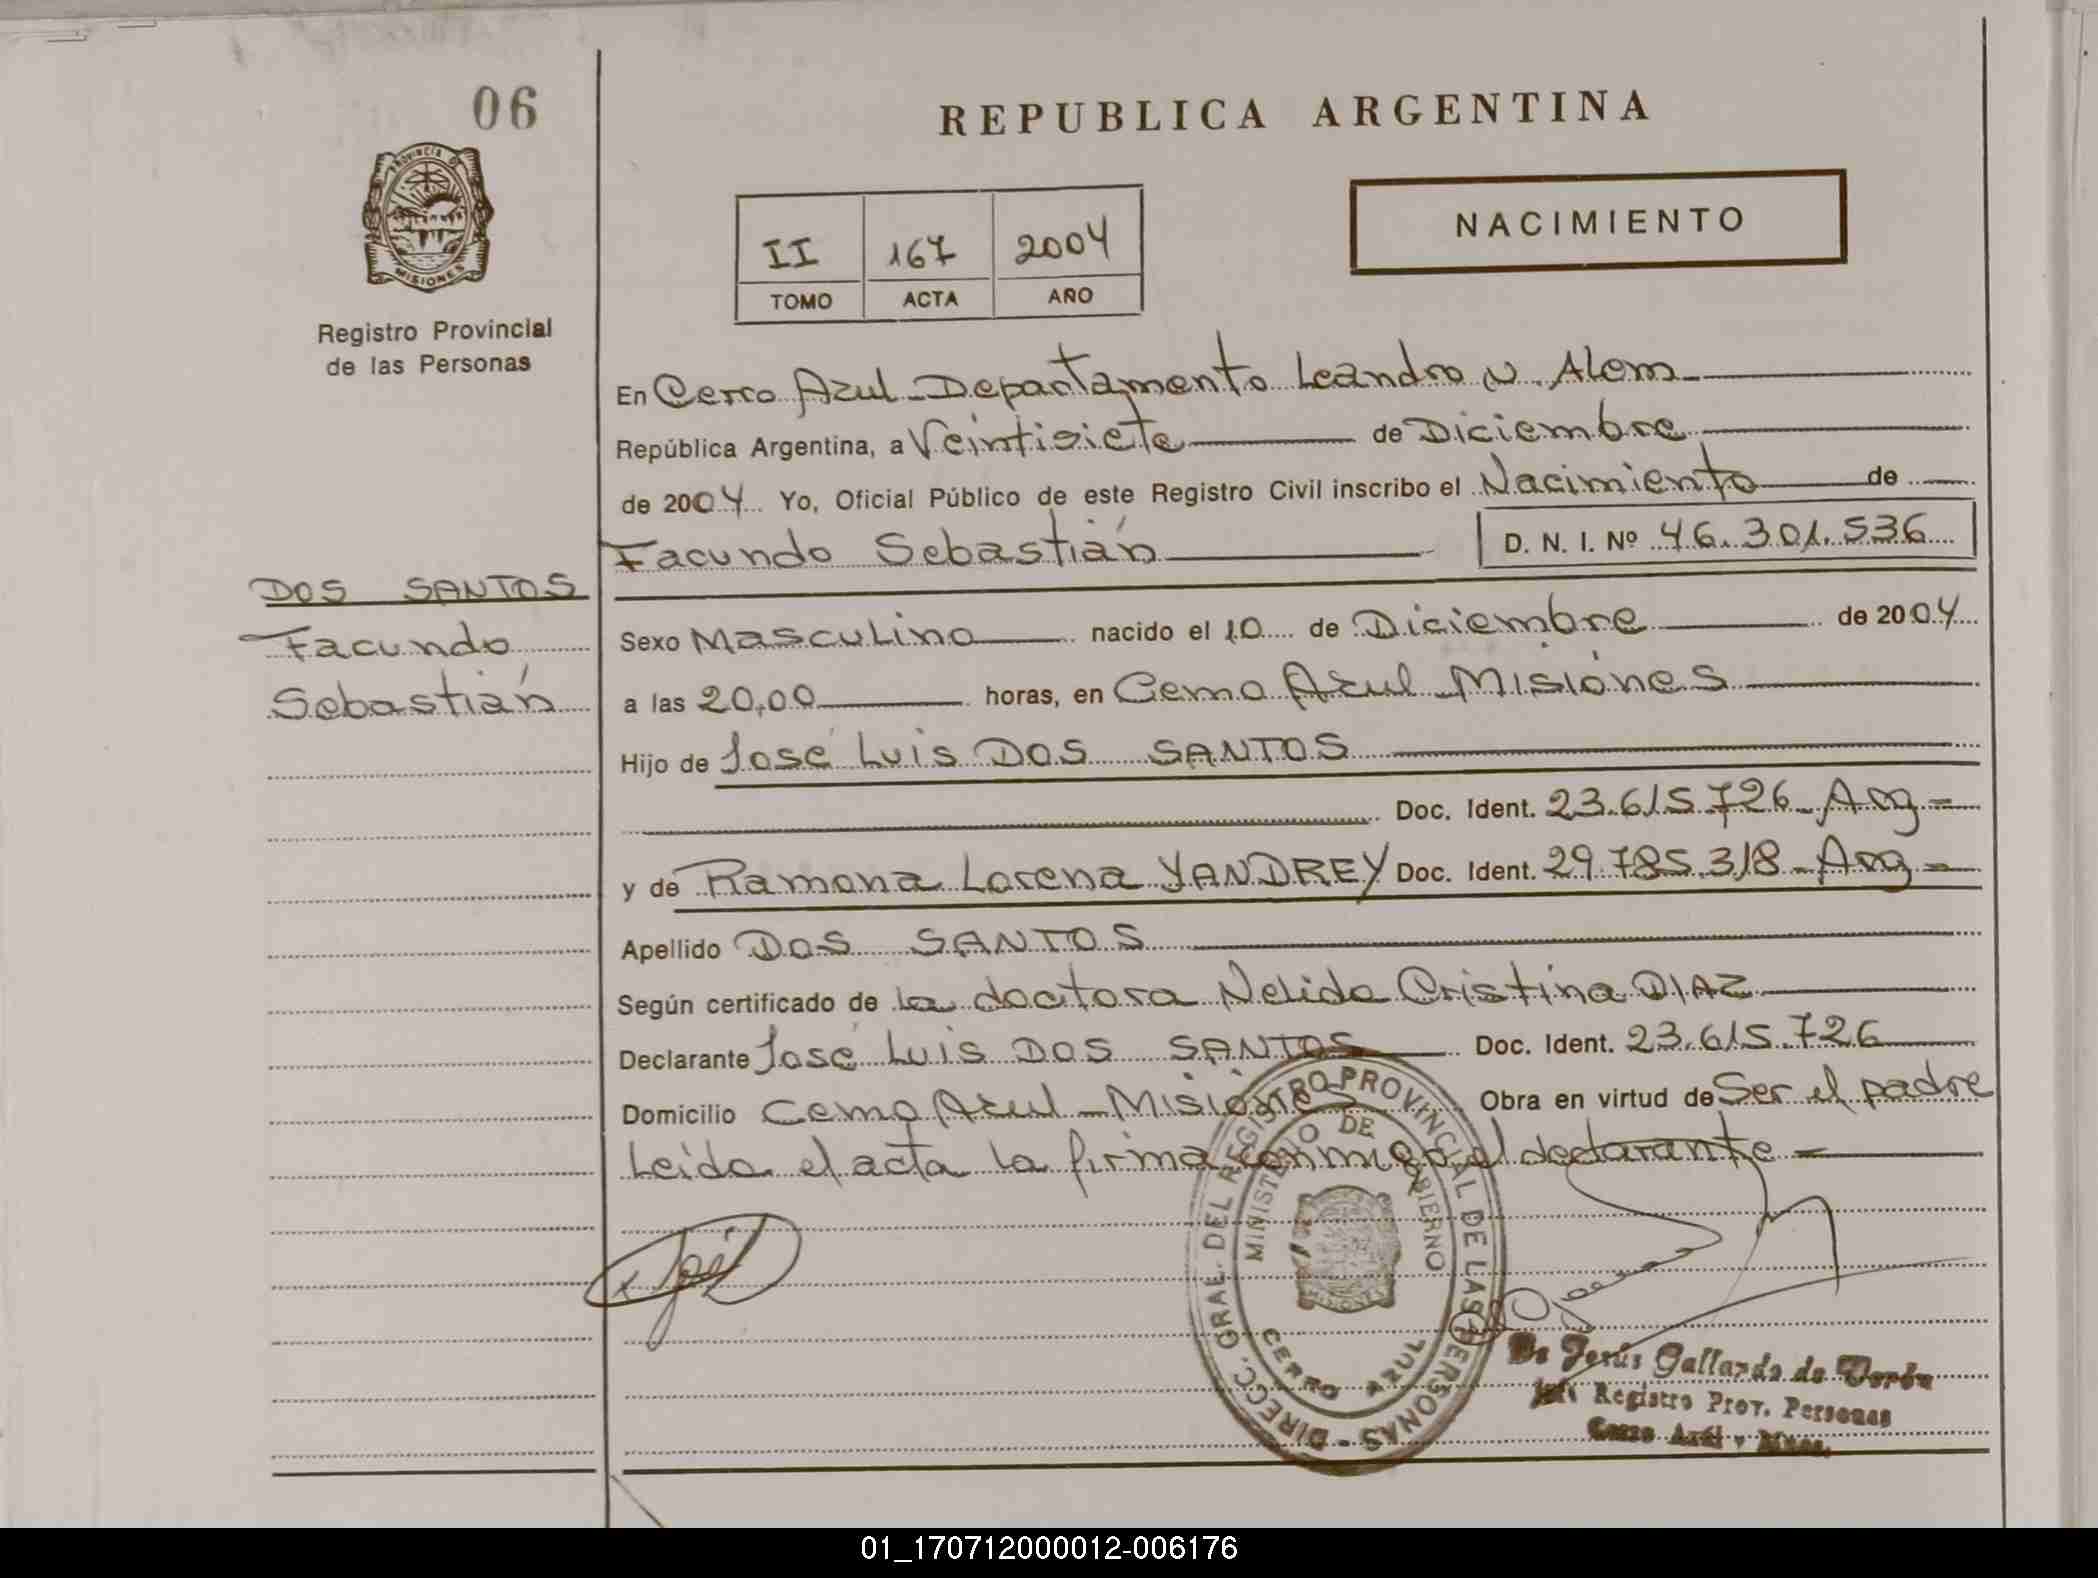 06
REPUBLICA ARGENTINA
PROVINCIA D
MISIONES
NACIMIENTO
II 167 2004
TOMO ACTA AÑO
Registro Provincial
de las Personas
En Cerro Azul - Departamento Leandro N. Alem
República Argentina, a Veintisiete de Diciembre
de 2004 Yo, Oficial Público de este Registro Civil inscribo el Nacimiento de
Facundo Sebastián D. N. I. Nº 46.301.536
DOS SANTOS
Facundo
Sebastián
Sexo Masculino nacido el 10 de Diciembre de 2004
a las 20,00 horas, en Cerro Azul - Misiones
Hijo de José Luis DOS SANTOS
Doc. Ident. 23.615.726 - Arg =
y de Ramona Lorena YANDREY Doc. Ident. 29.785.318 - Arg =
Apellido DOS SANTOS
Según certificado de la doctora Nelida Cristina DIAZ
Declarante José Luis DOS SANTOS Doc. Ident. 23.615.726
Domicilio Cerro Azul - Misiones Obra en virtud de Ser el padre
Leida el acta la firma conmigo el declarante =
DIRECC. GRAL. DEL REGISTRO PROVINCIAL DE LAS PERSONAS -
MINISTERIO DE GOBIERNO
MISIONES
CERRO AZUL
Jesús Gallardo de Verón
Registro Prov. Personas
Cerro Azul
01_170712000012-006176